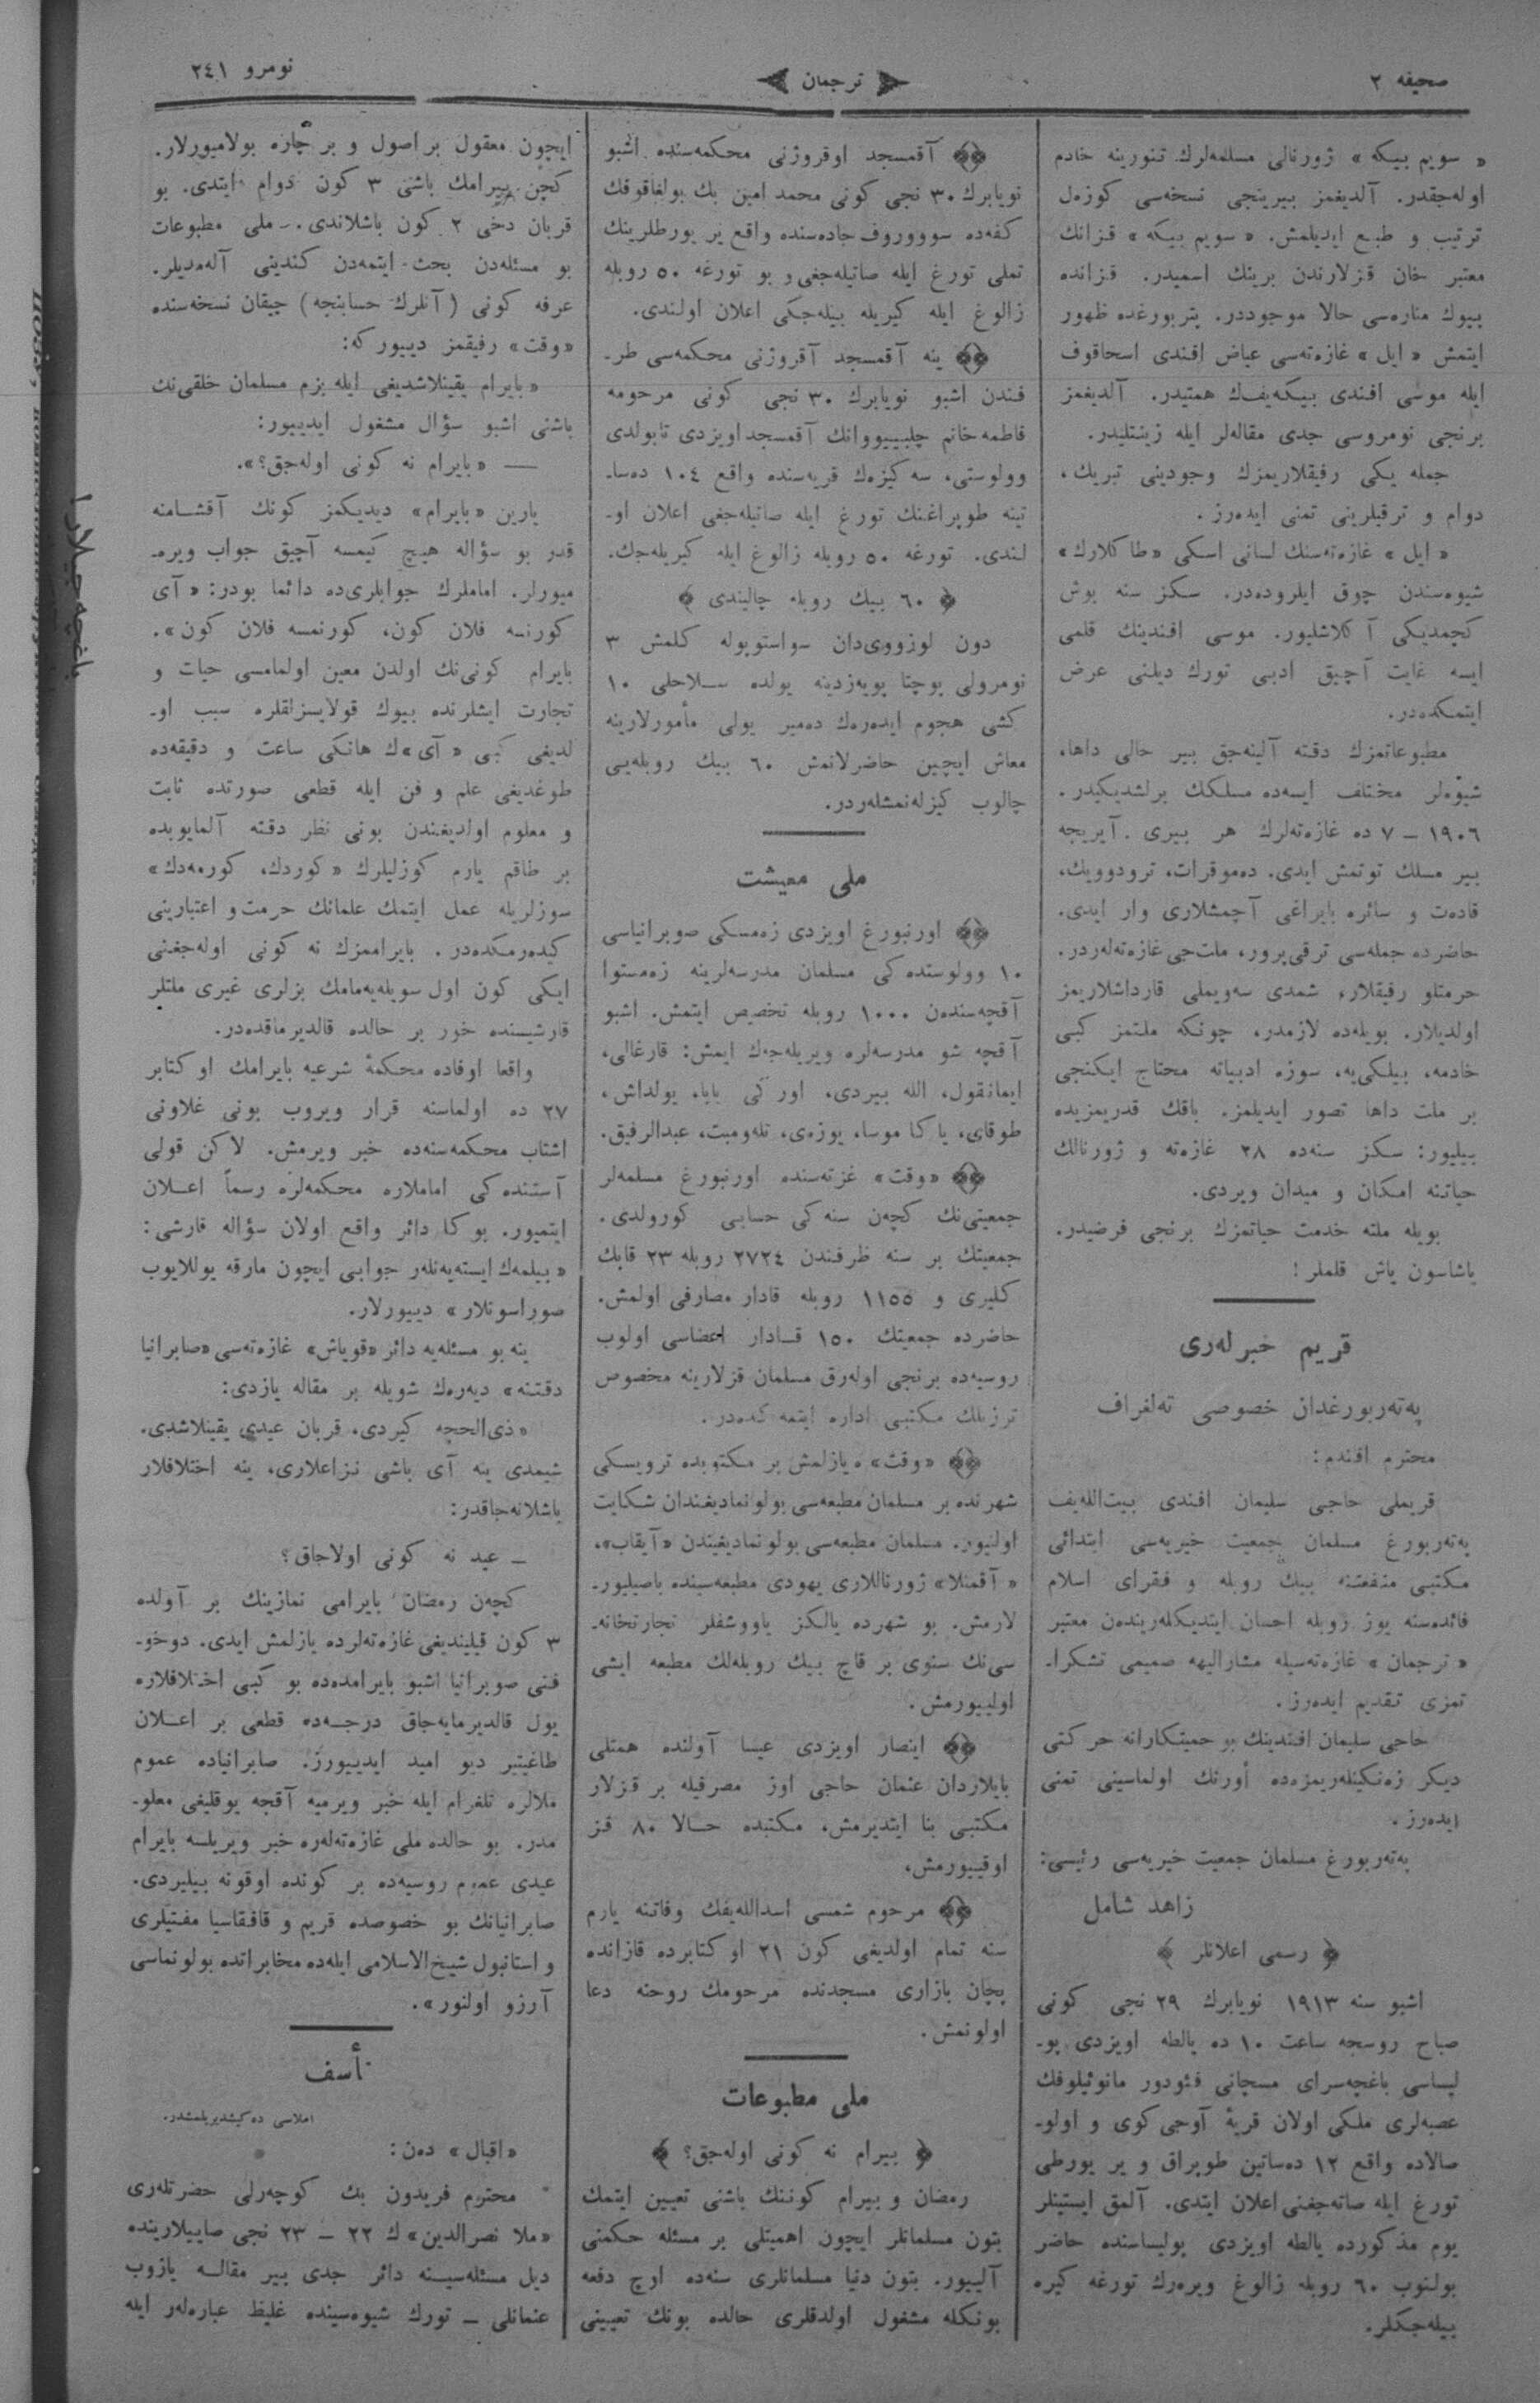 صحیفه ٢
ترجمان
نومرو ٢٤١
« سویم بیکه » ژورنالی مسلمه‌لرك تنورینه خادم
اوله‌جقدر. آلدیغمز بیرینجی نسخه‌سی کوزه‌ل
ترتیب و طبع ایدیلمش. « سویم بیکه » قزانك
معتبر خان قزلارندن برینك اسمیدر. قزانده
بیوك مناره‌سی حالا موجوددر. پتربورغده ظهور
ایتمش « ایل » غازه‌ته‌سی عیاض افندی اسحاقوف
ایله موسی افندی بیکه‌یفك همتیدر. آلدیغمز
برنجی نومروسی جدی مقاله‌لر ایله زینتلیدر.
جمله یکی رفیقلاریمزك وجودینی تبریك،
دوام و ترقیلرینی تمنی ایده‌رز.
« ایل » غازه‌ته‌سنك لسانی اسکی «طاکلارك»
شیوه‌سندن چوق ایلروده‌در. سکز سنه بوش
کچمدیکی آکلاشلیور. موسی افندینك قلمی
ایسه غایت آچیق ادبی تورك دیلنی عرض
ایتمکده‌در.
مطبوعاتمزك دقته آلینه‌جق بیر حالی داها،
شیوه‌لر مختلف ایسه‌ده مسلکك برلشدیکیدر.
١٩٠٦ – ٧ ده غازه‌ته‌لرك هر بیری آیریجه
بیر مسلك توتمش ایدی. ده‌موقرات، ترودوویك،
قاده‌ت و سائره بایراغی آچمشلاری وار ایدی.
حاضرده جمله‌سی ترقی‌پرور، ملت‌جی غازه‌ته‌لردر.
حرمتلو رفیقلار، شمدی سه‌ویملی قارداشلاریمز
اولدیلار. بویله‌ده لازمدر، چونکه ملتمز کبی
خادمه، بیلکی‌یه، سوزه ادبیاته محتاج ایکنجی
بر ملت داها تصور ایدیلمز. باقك قدریمزیده
بیلیور: سکز سنه‌ده ٢٨ غازه‌ته و ژورنالك
حیاتنه امکان و میدان ویردی.
بویله ملته خدمت حیاتمزك برنجی فرضیدر.
یاشاسون یاش قلملر !
قریم خبرلەری
پەتەربورغدان خصوصی تەلغراف
محترم افندم:
قریملی حاجی سلیمان افندی بیت‌الله‌یف
پەتەربورغ مسلمان جمعیت خیریه‌سی ابتدائی
مکتبی منفعتنه بیك روبله و فقرای اسلام
فائده‌سنه یوز روبله احسان ایتدیکله‌رینده‌ن معتبر
« ترجمان » غازه‌ته‌سیله مشارالیهه صمیمی تشکرا‌ـ
تمزی تقدیم ایده‌رز.
حاجی سلیمان افندینك بو حمیتکارانه حرکتی
دیکر زه‌نکینله‌ریمزه‌ده أورنك اولماسینی تمنی
ایده‌رز.
پەتەربورغ مسلمان جمعیت خیریه‌سی رئیسی:
زاهد شامل
﴿ رسمی اعلانلر ﴾
اشبو سنه ١٩١٣ نویابرك ٢٩ نجی کونی
صباح روسجه ساعت ١٠ ده یالطه اویزدی پو‌ـ
لیساسی باغچه‌سرای مسچانی فئودور مانوئیلوفك
عصبه‌لری ملکی اولان قریهٔ آوجی کوی و اولو‌ـ
صالاده واقع ١٢ ده‌ساتین طوپراق و یر یورطی
تورغ ایله صاته‌جغنی اعلان ایتدی. آلمق ایستینلر
یوم مذکورده یالطه اویزدی پولیساسنده حاضر
بولنوب ٦٠ روبله زالوغ ویره‌رك تورغه کیره
بیله‌جکلر.
آقمسجد اوقروژنی محکمه‌سنده اشبو
نویابرك ٣٠ نجی کونی محمد امین بك بولغاقوفك
کفه‌ده سوووروف جاده‌سنده واقع یر یورطلرینك
تملی تورغ ایله صاتیله‌جغی و بو تورغه ٥٠ روبله
زالوغ ایله کیریله بیله‌جکی اعلان اولندی.
ینه آقمسجد آقروژنی محکمه‌سی طر‌ـ
فندن اشبو نویابرك ٣٠ نجی کونی مرحومه
فاطمه خانم چلبییووانك آقمسجد اویزدی تابولدی
وولوستی، سه‌کیزه‌ك قریه‌سنده واقع ١٠٤ ده‌سا‌ـ
تینه طوپراغنك تورغ ایله صاتیله‌جغی اعلان او‌ـ
لندی. تورغه ٥٠ روبله زالوغ ایله کیریله‌جك.
﴿ ٦٠ بیك روبله چالیندی ﴾
دون لوزووی‌دان سواستوپوله کلمش ٣
نومرولی پوچتا پویه‌زدینه یولده سلاحلی ١٠
کشی هجوم ایده‌ره‌ك ده‌میر یولی مأمورلارینه
معاش ایچین حاضرلانمش ٦٠ بیك روبله‌یی
چالوب کیزله‌نمشله‌ردر.
ملی معیشت
اورنبورغ اویزدی زه‌مسکی صوبرانیاسی
١٠ وولوستده‌کی مسلمان مدرسه‌لرینه زه‌مستوا
آقچه‌سنده‌ن ١٠٠٠ روبله تخصیص ایتمش. اشبو
آقچه شو مدرسه‌لره ویریله‌جه‌ك ایمش: قارغالی،
ایمانقول، الله بیردی، اورکی بابا، یولداش،
طوقای، یاکا موسا، یوزه‌ی، تله‌ومبت، عبدالرفیق.
«وقت» غزته‌سنده اورنبورغ مسلمه‌لر
جمعیتی‌نك کچه‌ن سنه‌کی حسابی کورولدی.
جمعیتك بر سنه ظرفندن ٢٧٢٤ روبله ٢٣ قاپك
کلیری و ١١٥٥ روبله قادار مصارفی اولمش.
حاضرده جمعیتك ١٥٠ قادار اعضاسی اولوب
روسیه‌ده برنجی اوله‌رق مسلمان قزلارینه مخصوص
ترزیلك مکتبی اداره ایتمه‌کده‌در.
«وقت»ه یازلمش بر مکتوبده ترویسکی
شهرنده بر مسلمان مطبعه‌سی بولونمادیغندان شکایت
اولنیور. مسلمان مطبعه‌سی بولونمادیغیندن «آیقاب»،
« آقمنلا» ژورناللاری یهودی مطبعه‌سینده باصیلیور‌ـ
لارمش. بو شهرده یالکز یاووشفلر تجارتخانه‌ـ
سی‌نك سنوی بر قاچ بیك روبله‌لك مطبعه ایشی
اولییورمش.
اینصار اویزدی عیسا آولنده همتلی
بایلاردان عثمان حاجی اوز مصرفیله بر قزلار
مکتبی بنا ایتدیرمش، مکتبده حالا ٨٠ قز
اوقییورمش،
مرحوم شمسی اسدالله‌یفك وفاتنه یارم
سنه تمام اولدیغی کون ٢١ اوکتابرده قازانده
پچان بازاری مسجدنده مرحومك روحنه دعا
اولونمش.
ملی مطبوعات
﴿ بیرام نه کونی اوله‌جق؟ ﴾
رمضان و بیرام کوننك باشنی تعیین ایتمك
بتون مسلمانلر ایچون اهمیتلی بر مسئله حکمنی
آلییور. بتون دنیا مسلمانلری سنه‌ده اوچ دفعه
بونکله مشغول اولدقلری حالده بونك تعیینی
ایچون معقول بر اصول و بر چاره بولامیورلار.
کچن بیرامك باشی ٣ کون دوام ایتدی. بو
قربان دخی ٢ کون باشلاندی. ملی مطبوعات
بو مسئله‌دن بحث ایتمه‌دن کندینی آله‌مدیلر.
عرفه کونی (آنلرك حسابنجه) چیقان نسخه‌سنده
«وقت» رفیقمز دییورکه:
«بایرام یقینلاشدیغی ایله بزم مسلمان خلقی‌نك
باشنی اشبو سؤال مشغول ایدییور:
— «بایرام نه کونی اوله‌جق؟».
یارین «بایرام» دیدیکمز کونك آقشامنه
قدر بو سؤاله هیچ کیمسه آچیق جواب ویره‌ـ
میورلر. اماملرك جوابلری‌ده دائما بودر: «آی
کورنسه فلان کون، کورنمسه فلان کون».
بایرام کونی‌نك اولدن معین اولمامسی حیات و
تجارت ایشلرنده بیوك قولایسزلقلره سبب او‌ـ
لدیغی کبی «آی»ك هانکی ساعت و دقیقه‌ده
طوغدیغی علم و فن ایله قطعی صورتده ثابت
و معلوم اولدیغندن بونی نظر دقته آلمایوبده
بر طاقم یارم کوزلیلرك «کوردك، کورمه‌دك»
سوزلریله عمل ایتمك علمانك حرمت و اعتبارینی
کیده‌رمکده‌در. بایراممزك نه کونی اوله‌جغنی
ایکی کون اول سویله‌یه‌مامك بزلری غیری ملتلر
قارشیسنده خور بر حالده قالدیرماقده‌در.
واقعا اوفاده محکمهٔ شرعیه بایرامك اوکتابر
٢٧ ده اولماسنه قرار ویروب بونی غلاونی
اشتاب محکمه‌سنه‌ده خبر ویرمش. لاکن قولی
آستنده‌کی اماملاره محکمه‌لره رسماً اعلان
ایتمیور. بوکا دائر واقع اولان سؤاله قارشی:
«بیلمه‌ك ایسته‌یه‌نله‌ر جوابی ایچون مارقه یوللایوب
صوراسونلار» دییورلار.
ینه بو مسئله‌یه دائر «قویاش» غازه‌ته‌سی «صابرانیا
دقتنه» دیه‌ره‌ك شویله بر مقاله یازدی:
«ذی‌الحجه کیردی، قربان عیدی یقینلاشدی.
شیمدی ینه آی باشی نزاعلاری، ینه اختلافلار
باشلانه‌جاقدر:
– عید نه کونی اولاجاق؟
کچه‌ن رمضان بایرامی نمازینك بر آولده
٣ کون قیلیندیغی غازه‌ته‌لرده یازلمش ایدی. دوخو‌ـ
فنی صوبرانیا اشبو بایرامده‌ده بو کبی اختلافلاره
یول قالدیرمایه‌جاق درجه‌ده قطعی بر اعلان
طاغیتیر دیو امید ایدییورز. صابرانیاده عموم
ملالره تلغرام ایله خبر ویرمیه آقچه یوقلیغی معلو‌ـ
مدر. بو حالده ملی غازه‌ته‌له‌ره خبر ویریلسه بایرام
عیدی عموم روسیه‌ده بر کونده اوقونه بیلیردی.
صابرانیانك بو خصوصده قریم و قافقاسیا مفتیلری
و استانبول شیخ‌الاسلامی ایله‌ده مخابراتده بولونماسی
آرزو اولنور».
تأسف
املاسی ده‌کیشدیریلمشدر.
«اقبال» ده‌ن:
محترم فریدون بك کوچه‌رلی حضرتله‌ری
«ملا نصرالدین»ك ٢٢ – ٢٣ نجی صاییلارینده
دیل مسئله‌سینه دائر جدی بیر مقاله یازوب
عثمانلی – تورك شیوه‌سینده غلیظ عباره‌لر ایله
باغچه‌سرای